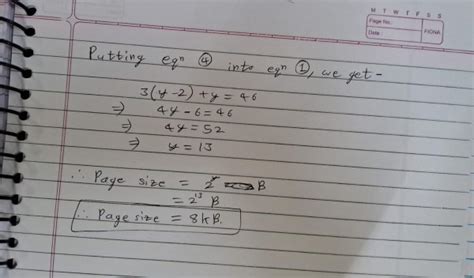 M T W T F S S
Page No.:
Date:
FIONA
Putting eqⁿ ④ into eqⁿ ①, we get -
3(y-2) + y = 46
⇒ 4y - 6 = 46
⇒ 4y = 52
⇒ y = 13
∴ Page size = 2ʸ B
= 2¹³ B
∴ Page size = 8kB.